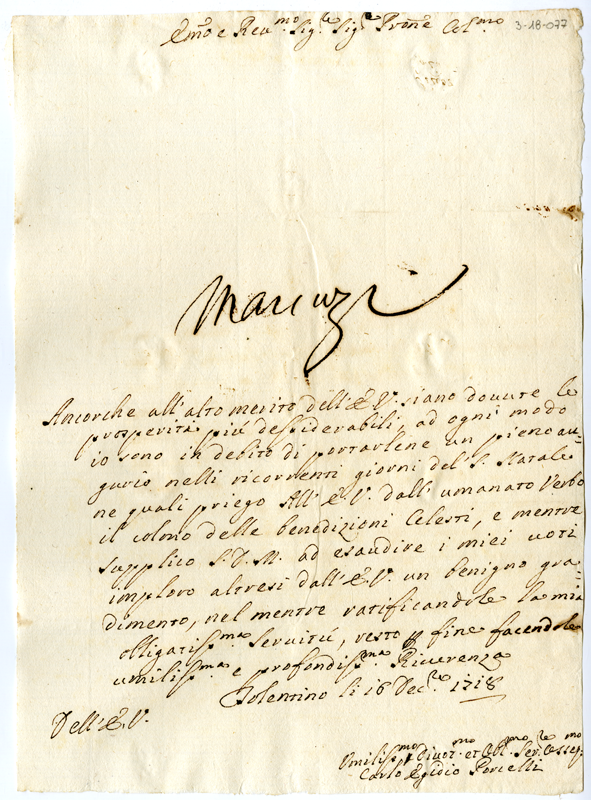 3-18-077
Em̃o e Reu.mo Sig.re Sig.re Prõne Col.mo
Ancorche all'alto merito dell'E.V. siano douute le
prosperità più dessiderabili, ad ogni modo
io sono in debito di portarlene un pieno au=
gurio nelli ricorrenti giorni del S. Natale
ne quali priego All'E.V. dall'umanato Verbo
il colmo delle benedizioni Celesti, e mentre
supplico S.D.M. ad esaudire i miei uoti
imploro altresi dall'E.V. un benigno gra=
dimento, nel mentre ratificandole la mia
obligatiss.ma seruitù, resto p fine facendole
umiliss.ma e profondiss.ma Riuerenza
Tolentino li 16 Dec.re 1718
Dell'E.V.
Umiliss.mo Diuot.mo et Obl.mo Ser.re Osseq.mo
Carlo Egidio Porcelli